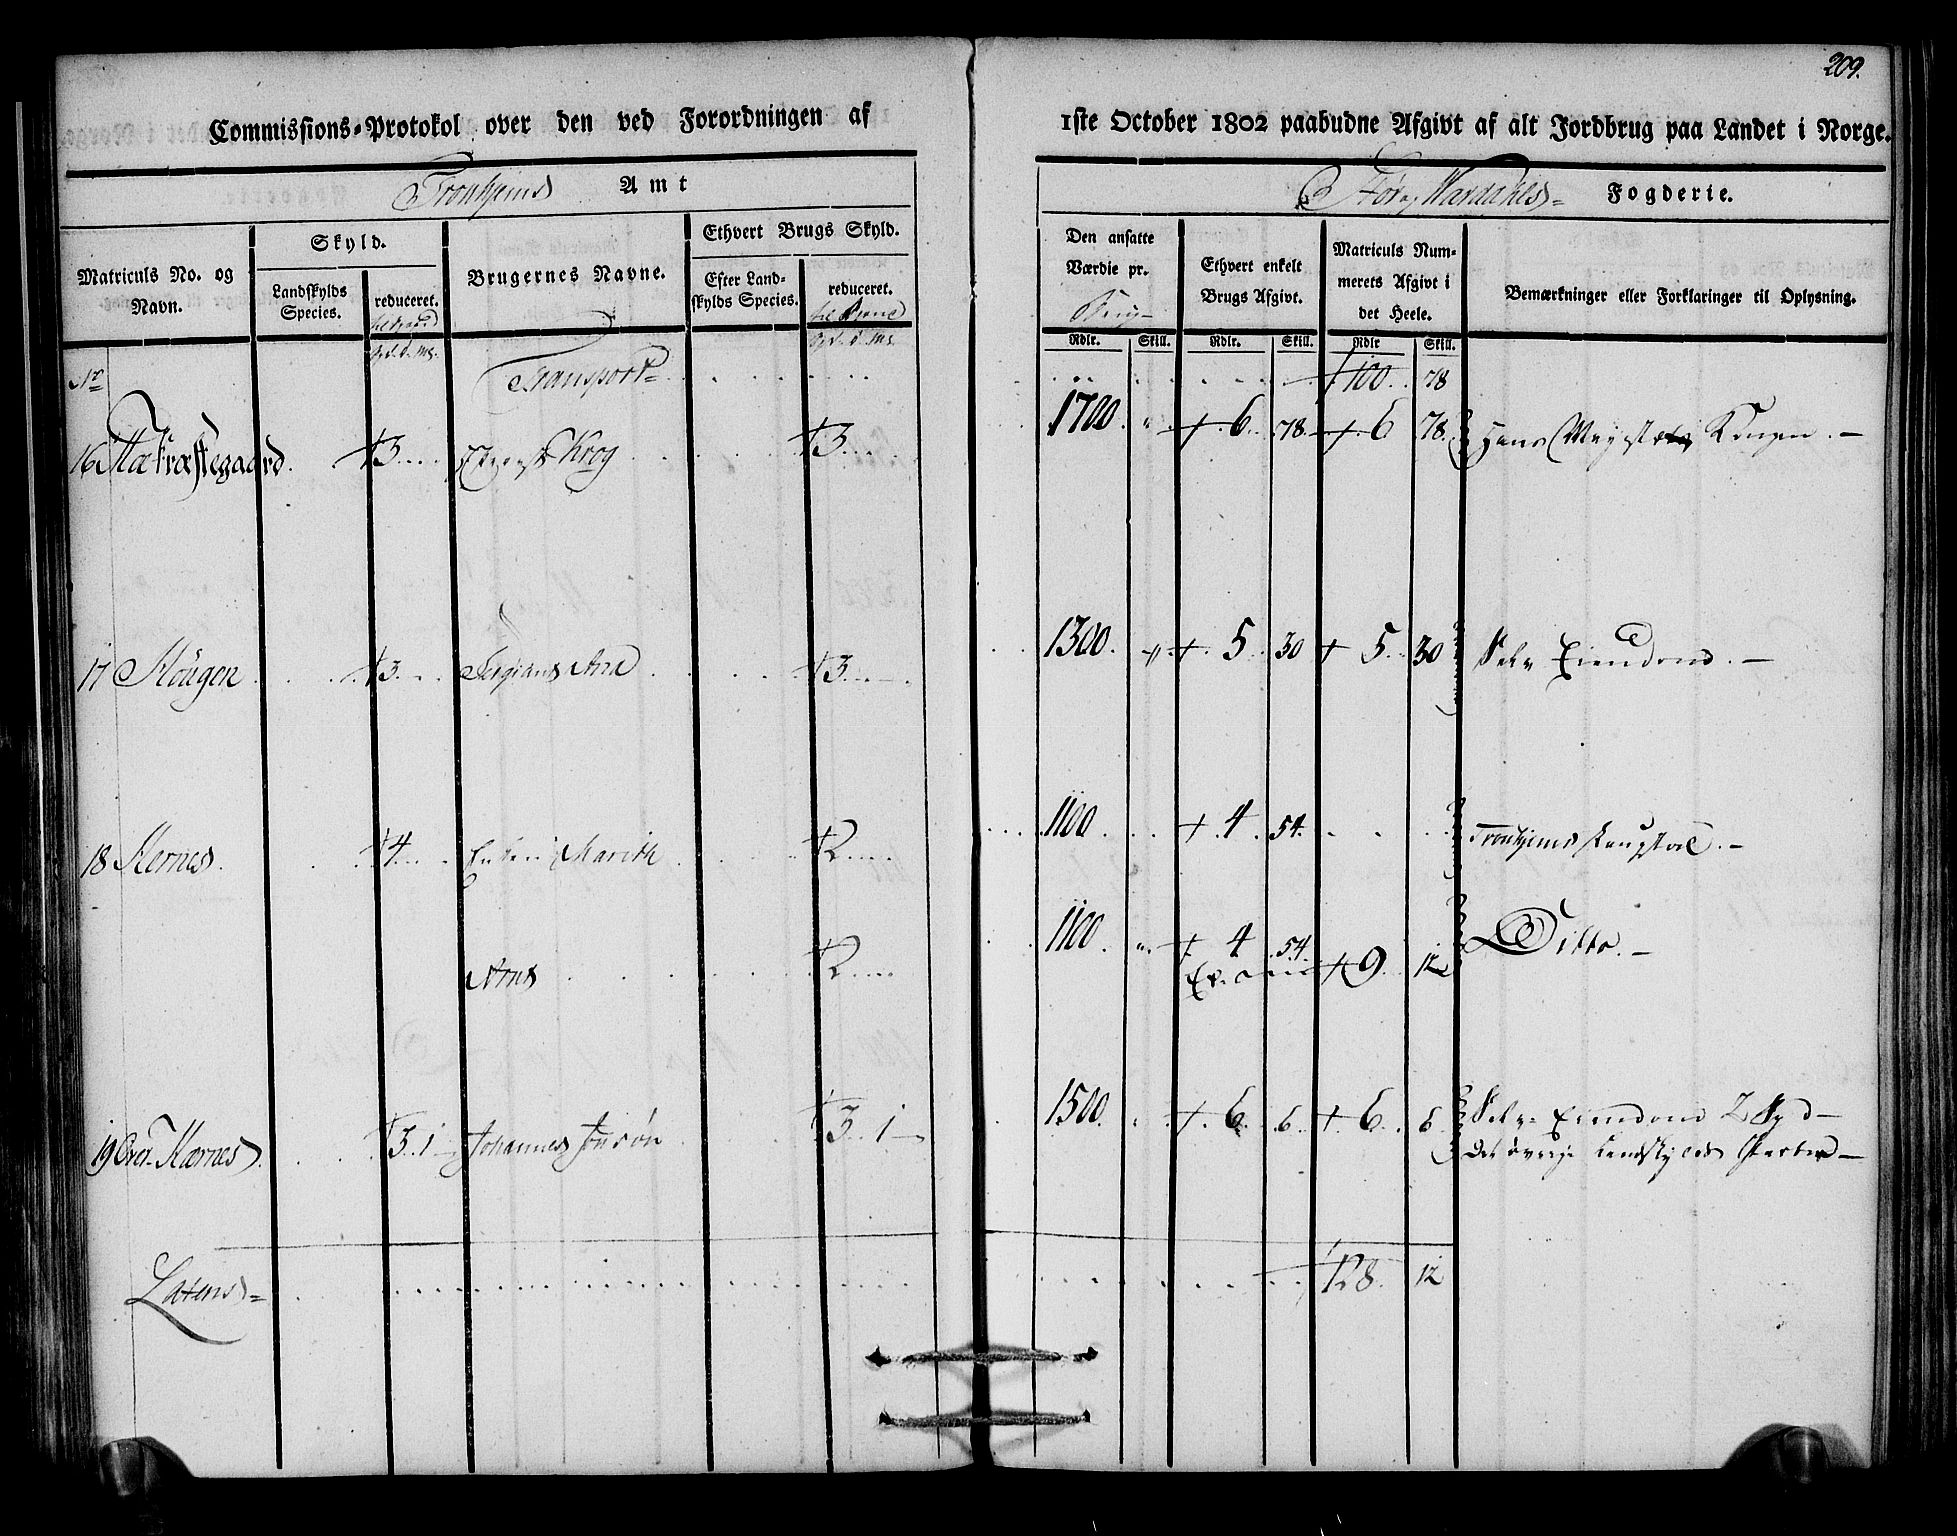 209.
Commissions-Protokol over den ved Forordningen af
1ste October 1802 paabudne Afgivt af alt Jordbrug paa Landet i Norge.
Tronhjems Amt
Fogderie.
Matriculs No. og Navn.
Skyld.
Landskylds Species.
reduceret.
Brugernes Navne.
Ethvert Brugs Skyld.
Efter Landskylds Species.
reduceret.
Den ansatte Værdie pr.
Brug
Ethvert enkelt Brugs Afgivt.
Matriculs Nummerets Afgivt i det Heele.
Bemærkninger eller Forklaringer til Oplysning.
Rdlr. Skill. Rdlr. Skill. Rdlr Skill.
No Transport 100. 78
16 3 Krog 3 1700. 6. 78. 6 78. Hans Kongen. —
17 Hougen 3 Arn 3 1300. 5 30 5 30 Selv Eiendom. —
18 Kernes 4 Marith 2 1100 4. 54. Tronhjems —
Arnt 2 1100. 4 54 9 12 Ditto. —
19 Over Kærnes 3 1 Johannes 3 1 1500. 6 6 6 6 Selv Eiendom
Det øvrige Landskylds
Lateris 128. 12